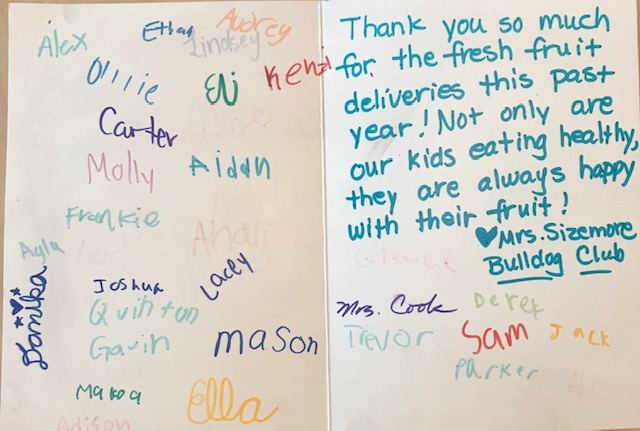 Alex Ethan Audrey
Lindsey
Ollie Eli Kenzi
Carter
Molly Aidan
Frankie
Ayla
Danika
Joshua Lacey
Quinton
Gavin mason
Makoa Ella
Adison
Thank you so much
for the fresh fruit
deliveries this past
year! Not only are
our kids eating healthy,
they are always happy
with their fruit!
♥Mrs. Sizemore
Bulldog Club
Grace
Mrs. Cook Derek
Trevor Sam Jack
Parker